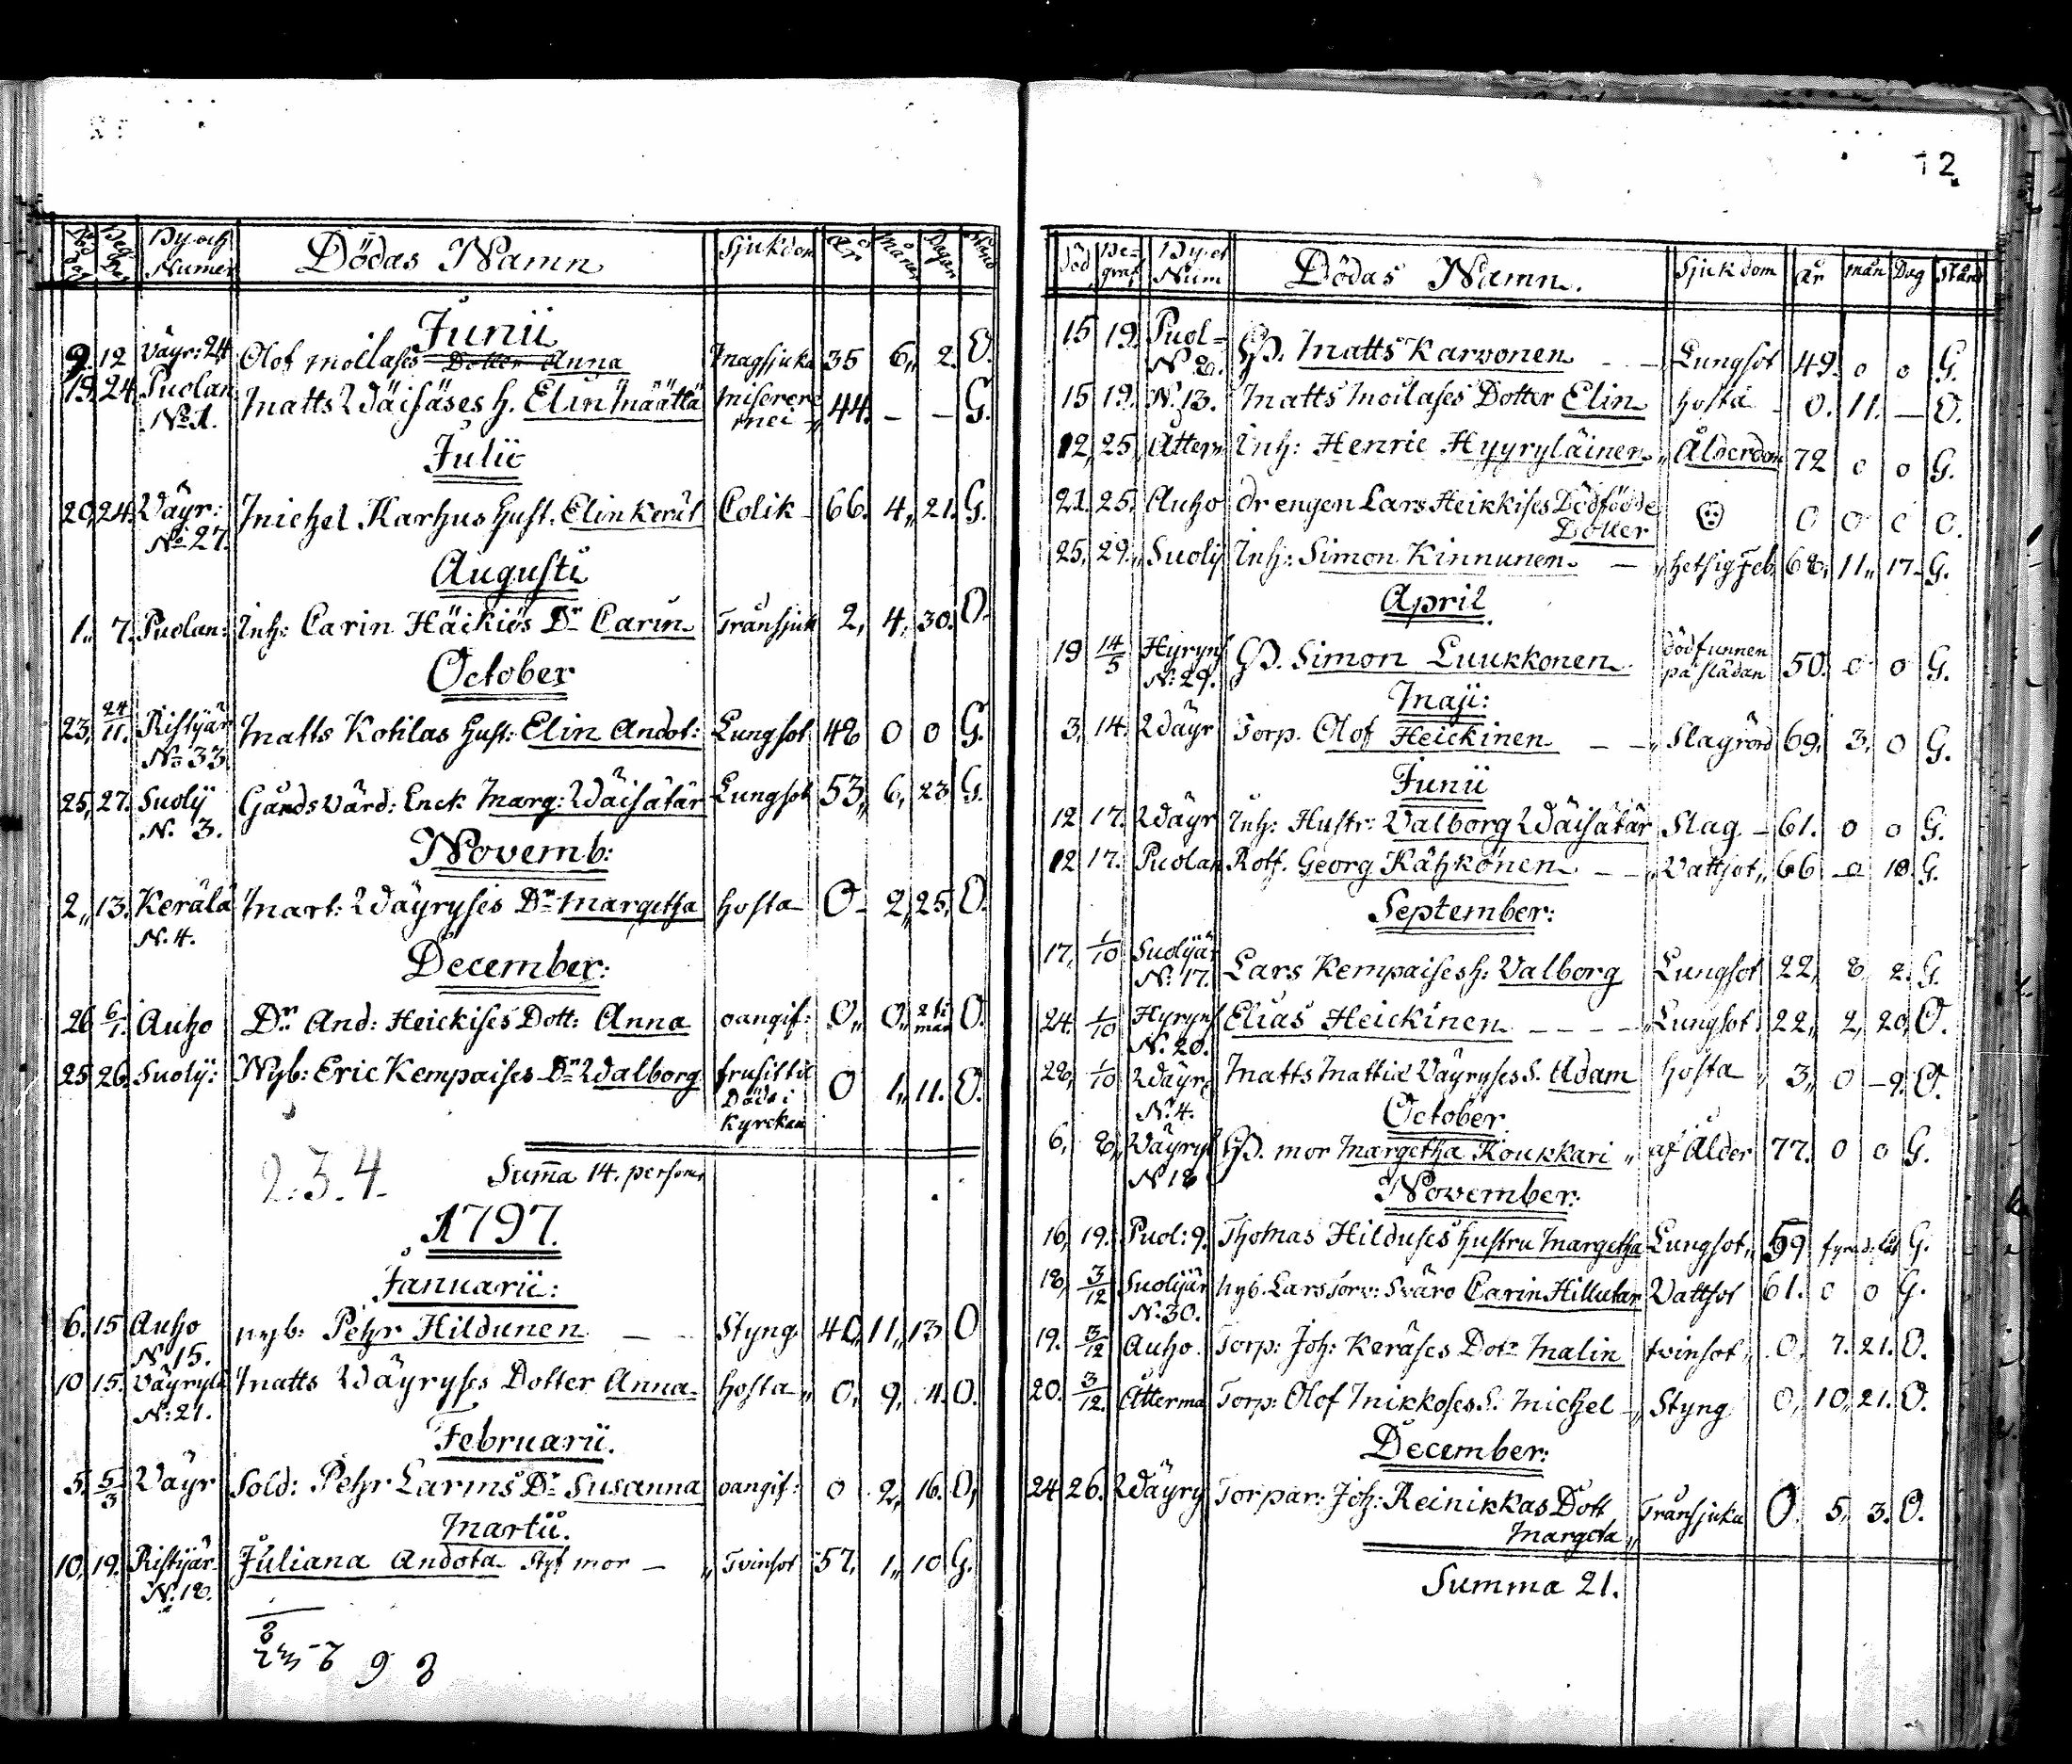 12.
By och Numer
Dödas Namn
Sjukdom
År
Månad
Dagar
Stånd
Junii
9. 12 Väyr: 24 Olof Moilases Dotter Anna Magsjuka 35 6,, 2. O.
19. 24. Puolan Matts Wäisäses h. Elin Määttä Miserere 44. - - G.
No. 1. mei
Julii
20, 24. Väyr: Michel Karhus Hust. Elin Kerät Colik 66. 4,, 21. G.
No. 27.
Augusti
1,, 7. Puolan: Inh: Carin Häikiös Dr Carin Transjuk 2, 4, 30. O.
October
23, 24/11. Ristijär Matts Kotilas Hust: Elin Andot: Lungsot 48 0 0 G.
No 33.
25, 27. Suolÿ Gårds Värd: Enck Marg: Wäisätär Lungsot 53,, 6, 23 G.
N. 3.
Novemb:
2,, 13. Kerälä Mart: Wäyryses Dr Margetha hosta 0 2,, 25, O.
N. 4.
December:
26 6/1. Auho Dr And: Heickises Dott: Anna oangif: 0,, 0,, 2 ti O.
25 26. Suolÿ: Nyb: Eric Kempaises Dr Walborg frusit til 0 1,, 11. O.
Döds i
Kyrckan
2.3.4. Suma 14. person
1797.
Januarii:
6. 15 Auho nyb: Pehr Hildunen Styng 40,, 11,, 13. O
N. 15.
10 15. Väyryl Matts Wäyryses Dotter Anna hosta,, 0, 9, 4. O.
N: 21.
Februarii.
5. 5/3 Väyr Sold: Pehr Larms Dr Susanna oangif: 0 2, 16. O,
Martii.
10, 19. Ristijär Juliana Andota Styf mor Tvinsot 57. 1,, 10 G.
N. 18.
8
9 8
Död Begraf By och Num Dödas Namn. Sjukdom År mån Dag Stånd
15 19. Puol= GD. Matts Karvonen Lungsot 49. 0 0 G.
N 2.
15 19. N. 13. Matts Moilases Dotter Elin hosta 0. 11. — O.
12, 25, Atterm Inh: Henric Hyyryläinen Ålderdom 72 0 0 G.
21. 25. Auho drengen Lars Heikkises Dödfödde 0 0 0 O.
Dotter
25, 29. Suolÿ Inh: Simon Kinnunen hetsig feb. 68, 11,, 17. G.
April
19 14/5 Hyryns GD. Simon Luukkonen död funnen 50. 0 0 G.
N: 29. på slädan
Maji:
3, 14. Wäyr Torp. Olof Heickinen Slagrörd 69, 3, 0 G.
Junii
12 17. Wäyr Inh: Hustr: Valborg Wäisätär Slag 61. 0 0 G.
12 17. Puolan Rotf. Georg Kähkönen Vattsot,, 66 0 18 G.
September:
17, 1/10 Suolijär Lars Kempaises h: Valborg Lungsot 22, 8, 2. G.
N. 17.
24. 1/10 Hyryns Elias Heickinen Lungsot 22,, 2, 20, O.
N. 20.
28, 1/10 Wäyr, Matts Mattia Väyryses S. Adam hosta 3,, 0 9. O.
N. 4.
October
6, 8,, Väyryl GD. mor Margetha Koukkari af Ålder 77. 0 0 G.
N 18
November:
16, 19. Puol: 9. Thomas Hilduses hustru Margetha Lungsot,, 59 G.
18, 3/12 Suolijär nyb. Lars Torv: Svära Carin Hillutar Vattsot 61. 0 0 G.
N. 30.
19. 3/12 Auho. Torp: Joh: Keräses Dotr Malin tvinsot,, 0, 7. 21. O.
20. 3/12. Atterma Torp: Olof Mikkoses S. Michel Styng 0, 10, 21. O.
December:
24 26. Wäyry Torpar: Joh: Reinikkas Dott Transjuka 0. 5, 3. O.
Margeta,,
Summa 21.